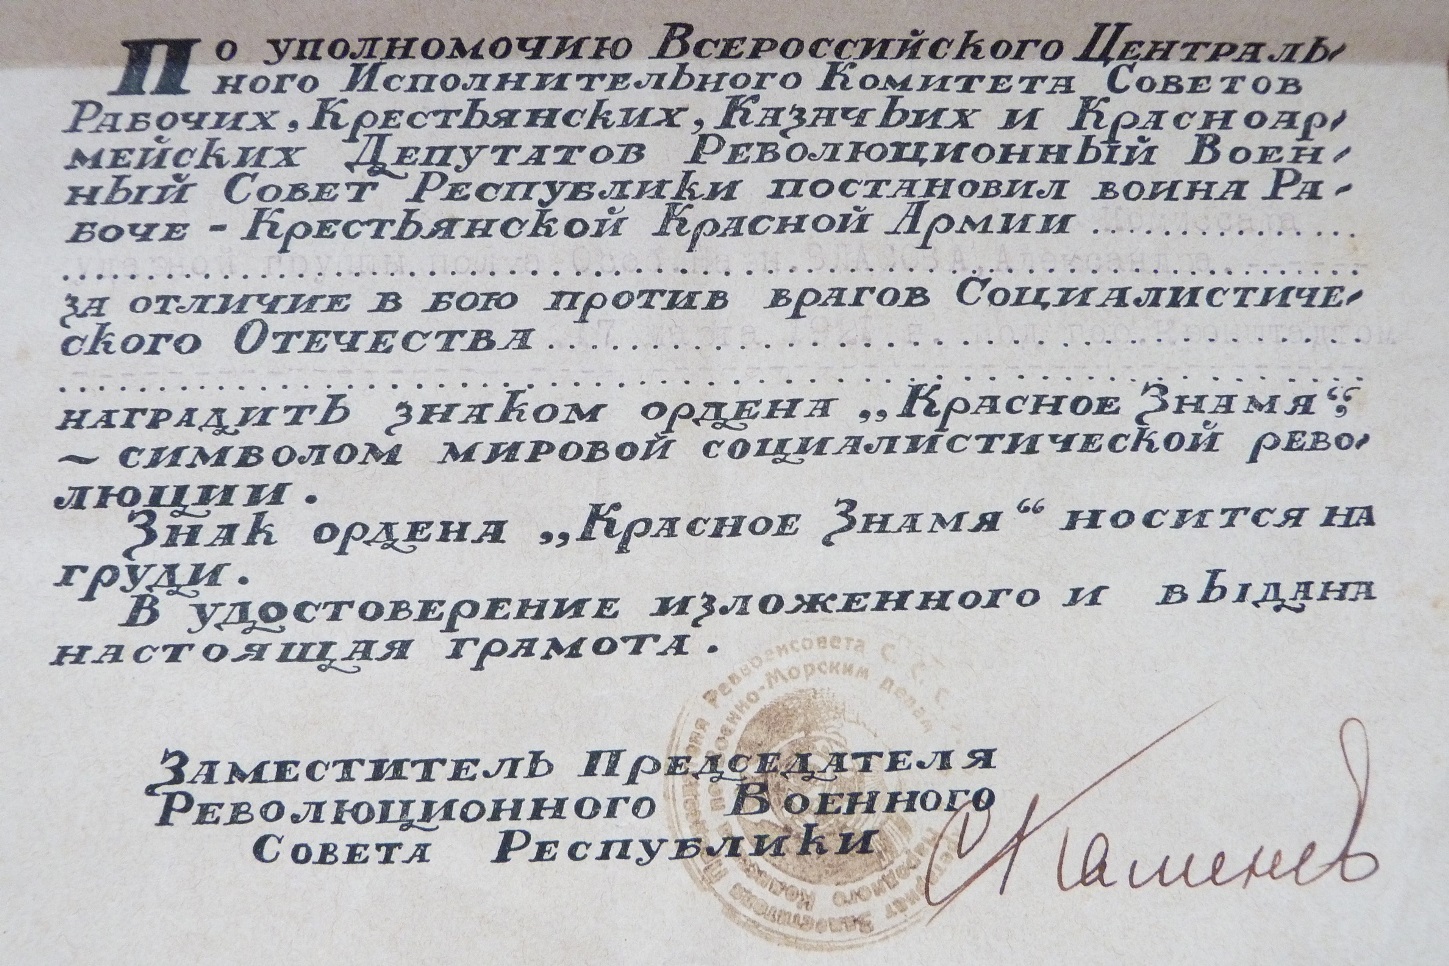 По уполномочию Всероссийского Централь-
ного Исполнительного Комитета Советов
Рабочих, Крестьянских, Казачьих и Красноар-
мейских Депутатов Революционный Воен-
ный Совет Республики постановил воина Ра-
боче-Крестьянской Красной Армии ..............
за отличие в бою против врагов Социалистиче-
ского Отечества ..............
наградить знаком ордена „Красное Знамя“,
– символом мировой социалистической рево-
люции.
Знак ордена „Красное Знамя“ носится на
груди.
В удостоверение изложенного и выдана
настоящая грамота.
Реввоенсовета С. С. С.
Военно-Морским делам
Заместитель Председателя
Революционного Военного
Совета Республики
С Каменев